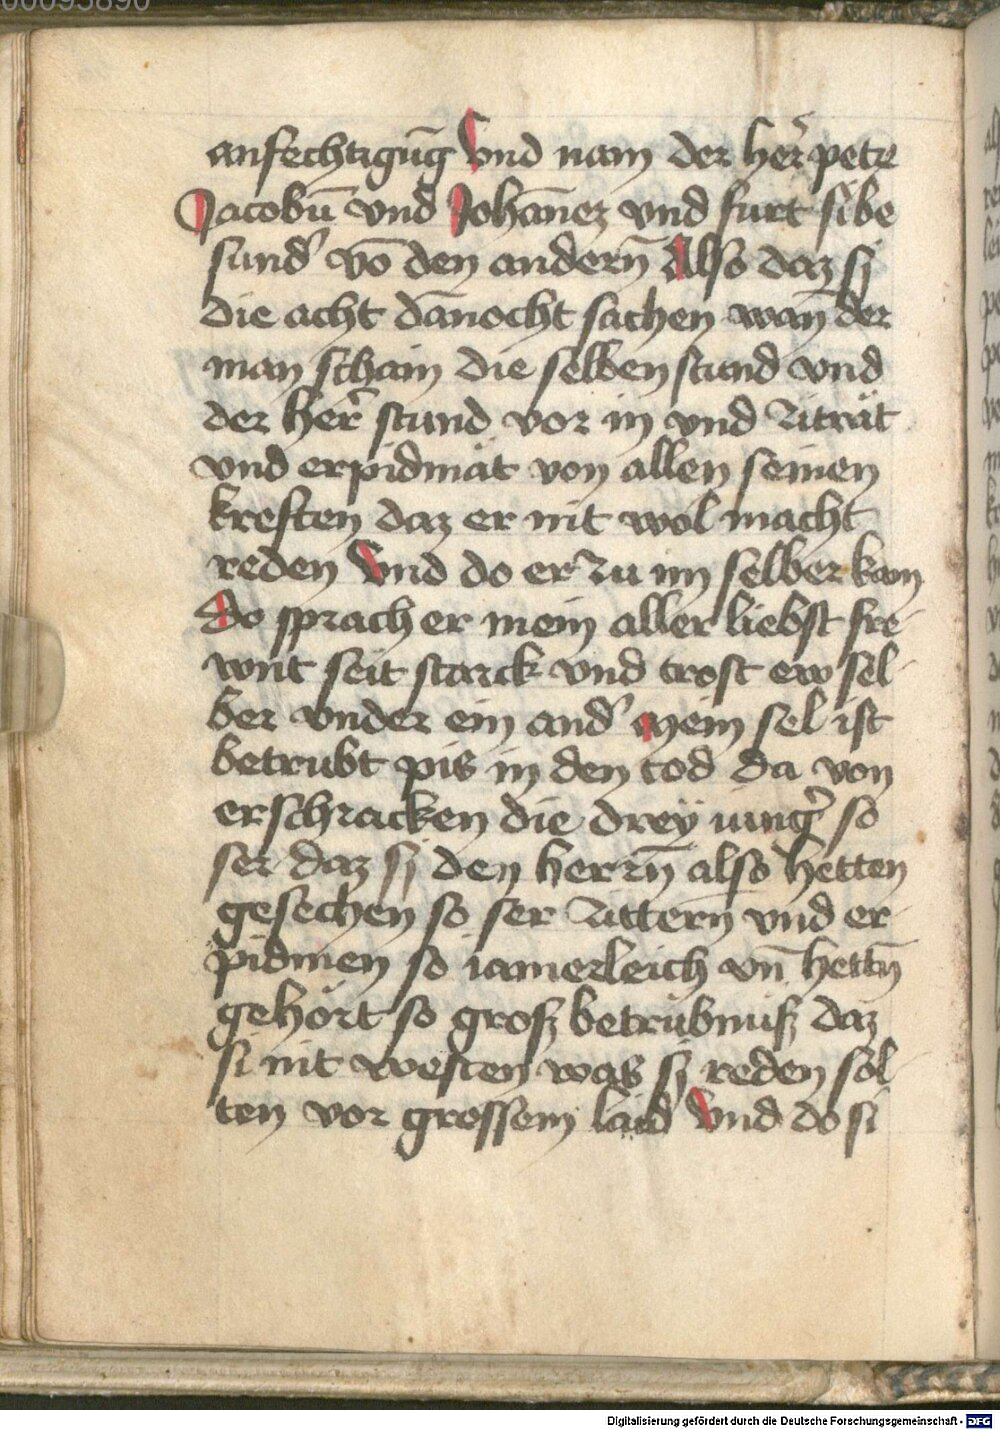 00095890
anfechtigūg Vnd nam der her̄ petr
Jacobū vnd Johānez vnd furt si be
sund' vō den andern̄ Also daz sj
die acht dānocht sachen wan̄ der
man schain die selben stund vnd
der her̄ stund vor in vnd ziträt
vnd erpidmät von allen seinen
kreften daz er nit wol macht
reden Vnd do er zu im selber kam
do sprach er mein aller liebst fre-
wnt seit starck vnd trost ew sel-
ber vnder ein and' Mein sel ist
betrubt pis in den tod da von
erschracken die dreÿ iung' so
ser daz sj den herrn̄ also hetten
gesechen so ser zittern̄ vnd er-
pidmen so iamerleich vn̄ hettn̄
gehört so grosz betrübnusz daz
si nit westen was sj reden söl-
ten vor grossem laid Vnd do si
Digitalisierung gefördert durch die Deutsche Forschungsgemeinschaft - DFG